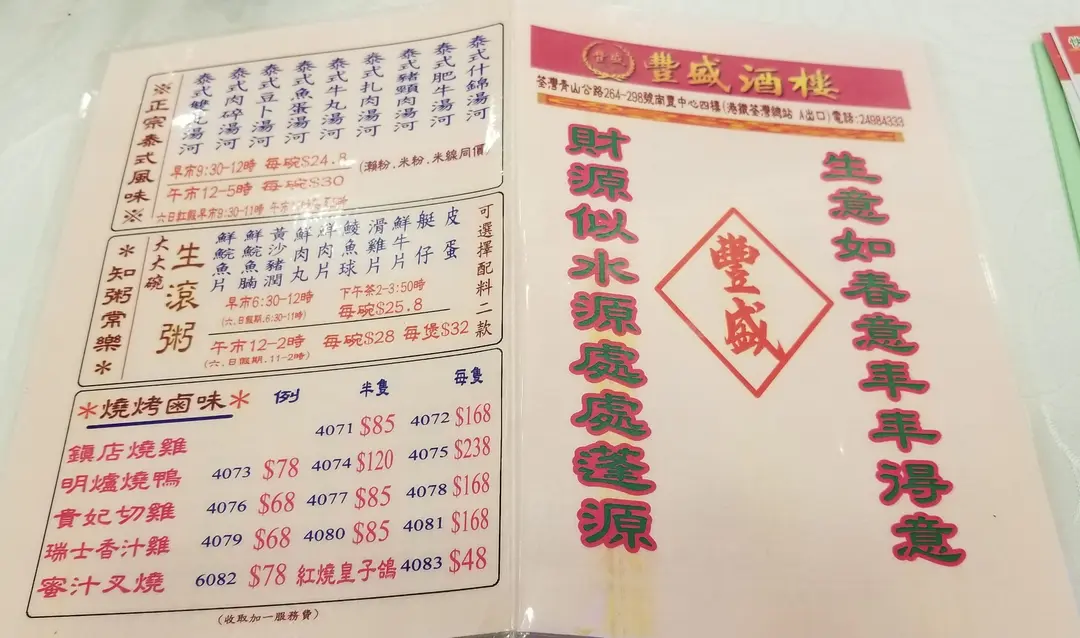 ※正宗泰式風味※
泰式什錦湯河
泰式肥牛湯河
泰式豬頸肉湯河
泰式扎肉湯河
泰式牛丸湯河
泰式魚蛋湯河
泰式豆卜湯河
泰式肉碎湯河
早市9:30-12時 每碗$24.8
(瀨粉．米粉．米線同價)
午市12-5時 每碗$30
六日紅假早市9:30-11時
*知粥常樂*
大大碗
生滾粥
可選擇配料二款
皮蛋
艇仔
鮮牛片
滑雞片
鯪魚球
鮮肉片
鮮肉丸
黃沙豬潤
鮮鯇魚腩
鮮鯇魚片
早市6:30-12時
(六.日假期.6:30-11時)
下午茶2-3:50時
每碗$25.8
午市12-2時
(六.日假期.11-2時)
每碗$28 每煲$32
*燒烤鹵味* 例 半隻 每隻
鎮店燒雞 4071 $85 4072 $168
明爐燒鴨 4073 $78 4074 $120 4075 $238
貴妃切雞 4076 $68 4077 $85 4078 $168
瑞士香汁雞 4079 $68 4080 $85 4081 $168
蜜汁叉燒 6082 $78 紅燒皇子鴿 4083 $48
(收取加一服務費)
豐盛酒樓
荃灣青山公路264-298號南豐中心四樓(港鐵荃灣鐵站 A出口)電話:24984333
生意如春意年年得意
豐盛
財源似水源處處蓬源